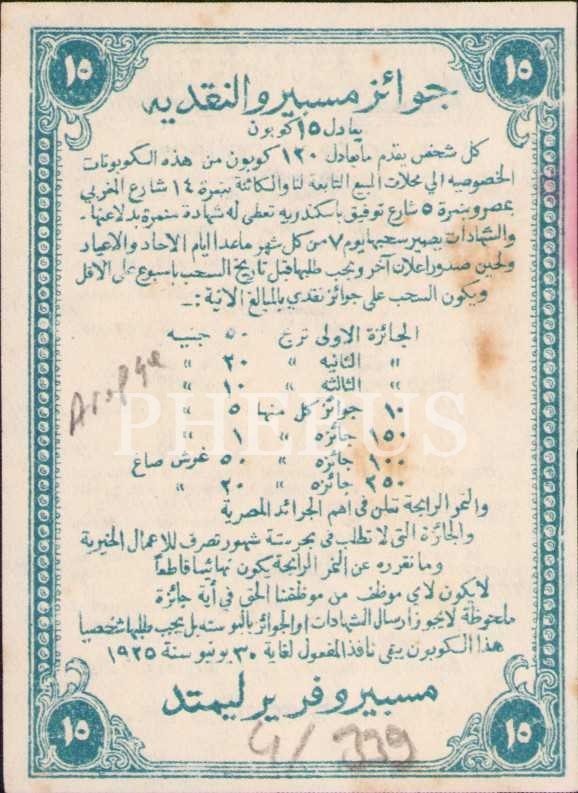 ١٥ ١٥
جوائز مسبيرو النقديه
يعادل ١٥ كوبون
كل شخص يقدم ما يعادل ١٢٠ كوبون من هذه الكوبونات
الخصوصيه الى محلات البيع التابعة لنا والكائنة بنمرة ١٤ شارع المغربي
بمصر وبنمرة ٥ شارع توفيق باسكندريه تعطى له شهادة بنمرة بدلا عنها .
والشهادات يصير سحبها يوم ٧ من كل شهر ماعدا ايام الاحاد والاعياد
ولحين صدور اعلان آخر ويجب طلبها قبل تاريخ السحب باسبوع على الاقل
ويكون السحب على جوائز نقدي بالمبالغ الآتية :ـ
الجائزة الاولى تربح ٥٠ جنيه
" الثانيه " ٢٠ "
" الثالثه " ١٠ "
١٠ جوائز كل منها ٥ "
١٥٠ جائزه " ١ "
١٠٠ جائزه " ٥٠ غرش صاغ
٢٥٠ جائزه " ٢٠ "
والنمر الرابحة تعلن في اهم الجرائد المصرية
والجائزة التى لا تطلب في بحر ستة شهور تصرف للاعمال الخيرية
وما نقرره عن النمر الرابحة يكون نهائيا قاطعاً
لا يكون لاي موظف من موظفينا الحق في أية جائزة
ملحوظة لا يجوز ارسال الشهادات او الجوائز بالبوسته بل يجب طلبها شخصيا
هذا الكوبون يبقى نافذ المفعول لغاية ٣٠ يونيو سنة ١٩٢٥
مسبيرو فرير ليمتد
١٥ ١٥
4/339
PHEBUS